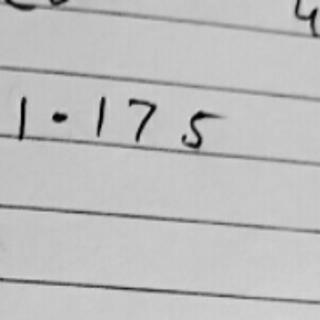 4
1.175